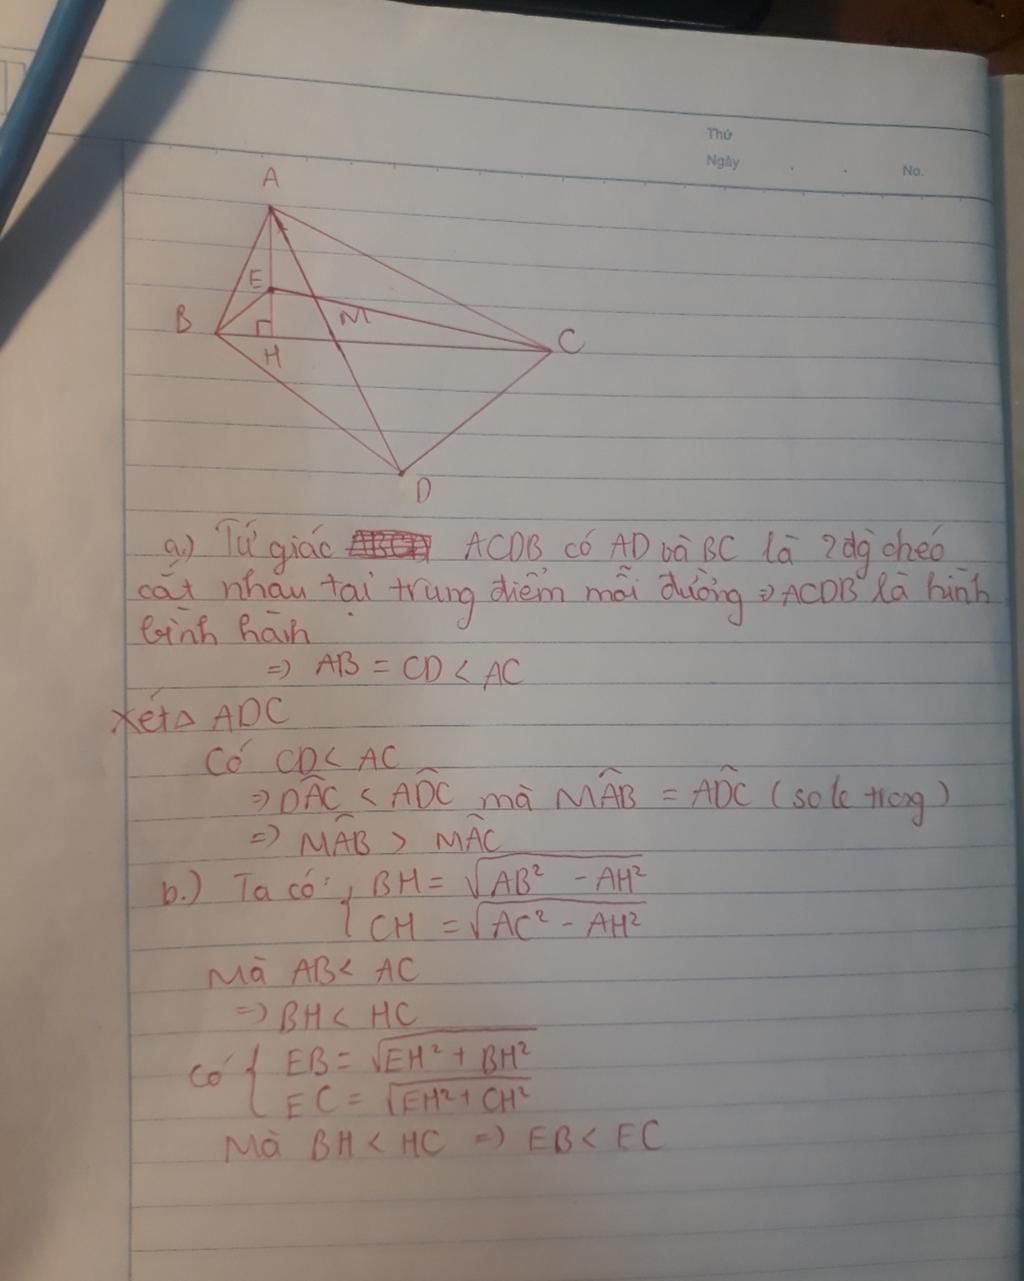 Thứ
Ngày . . No.
A
E
B
M
H
C
D
a.) Tứ giác ACDB có AD và BC là 2 đg chéo
cắt nhau tại trung điểm mỗi đường => ACDB là hình
bình hành
=> AB = CD < AC
Xét Δ ADC
Có CD < AC
=> DÂC < AD̂C mà MÂB = AD̂C (so le trong)
=> MÂB > MÂC
b.) Ta có: { BH = √(AB² - AH²)
CH = √(AC² - AH²)
Mà AB < AC
=> BH < HC
Có { EB = √(EH² + BH²)
EC = √(EH² + CH²)
Mà BH < HC => EB < EC